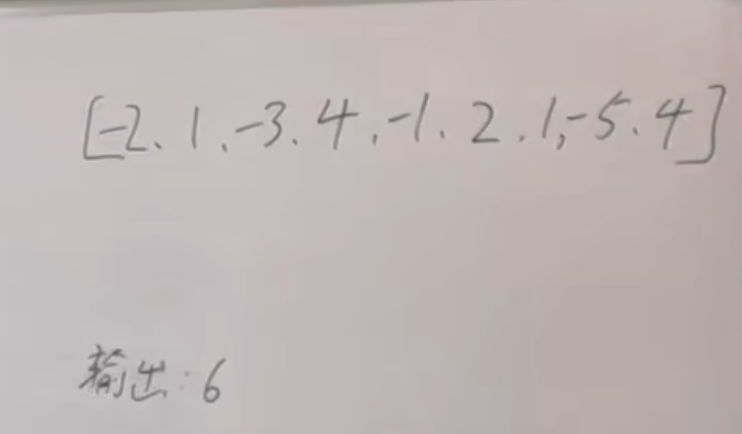 [-2、1、-3、4、-1、2、1,-5、4]
输出:6